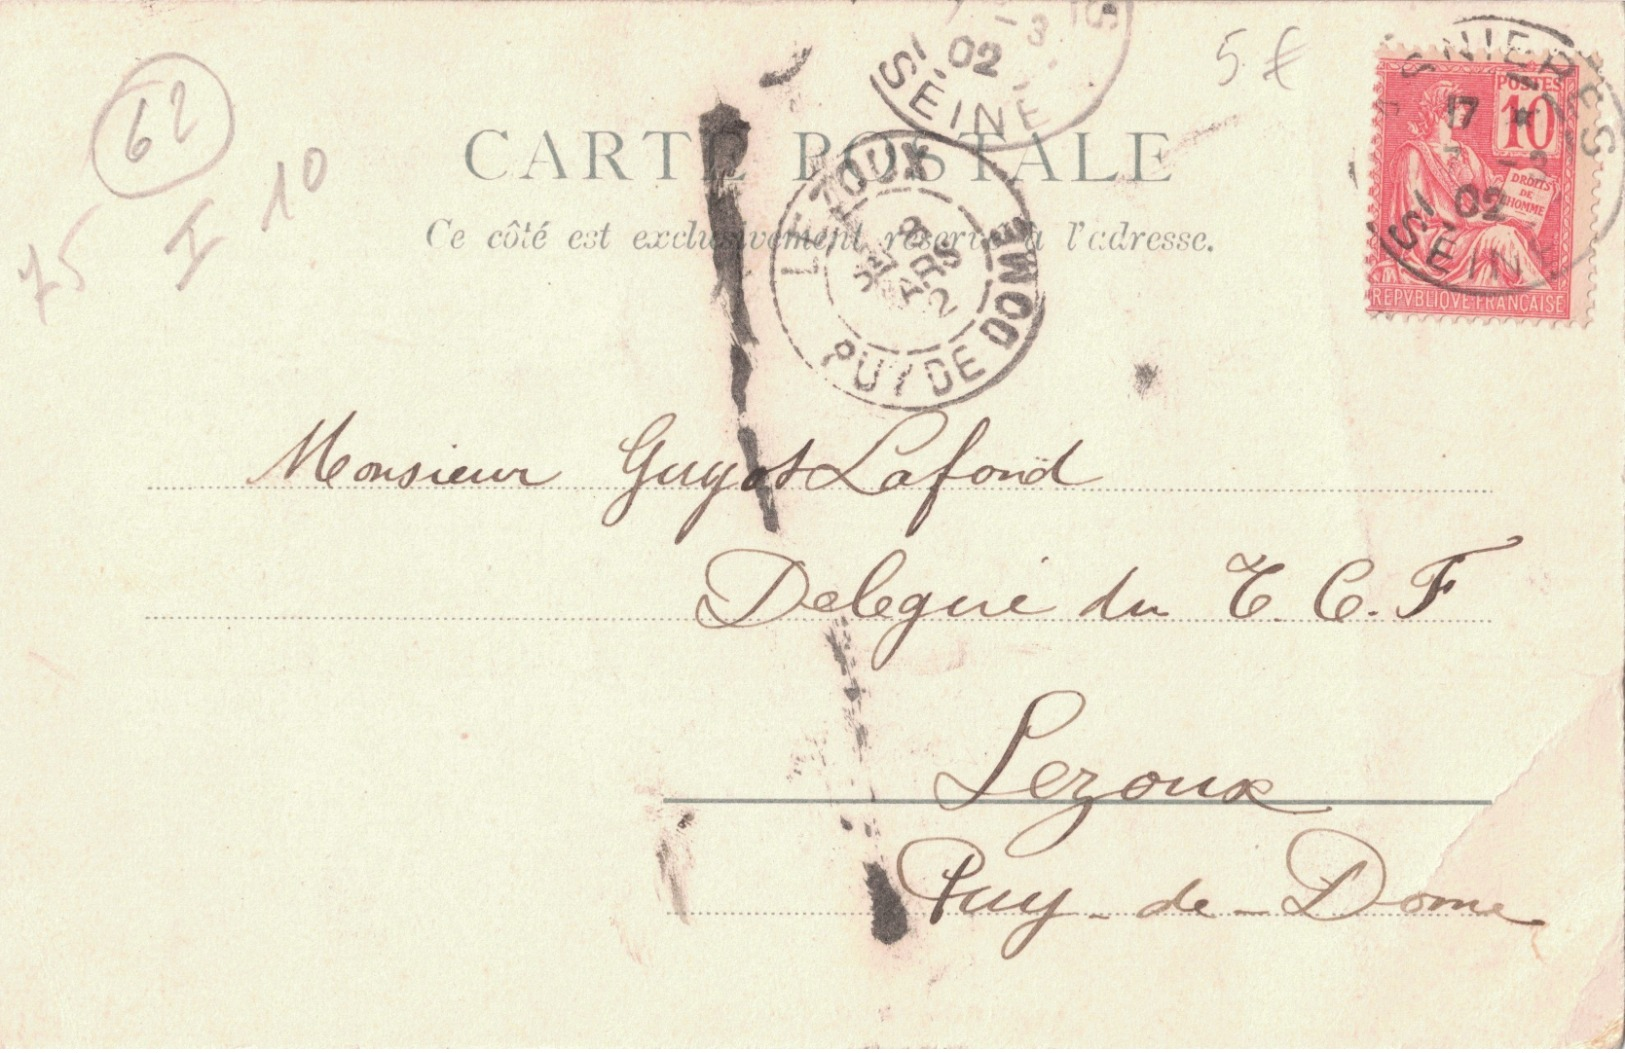 62
75
I
10
5€
SEINE
02
3
CARTE POSTALE
Ce côté est exclusivement réservé à l'adresse.
LEZOUX
PUY DE DOME
ASNIERES
17
02
SEINE
POSTES
10
DROITS
DE
L'HOMME
REPVBLIQVE FRANÇAISE
Monsieur Guyot Lafond
Delegué du T. C. F
Lezoux
Puy-de-Dome